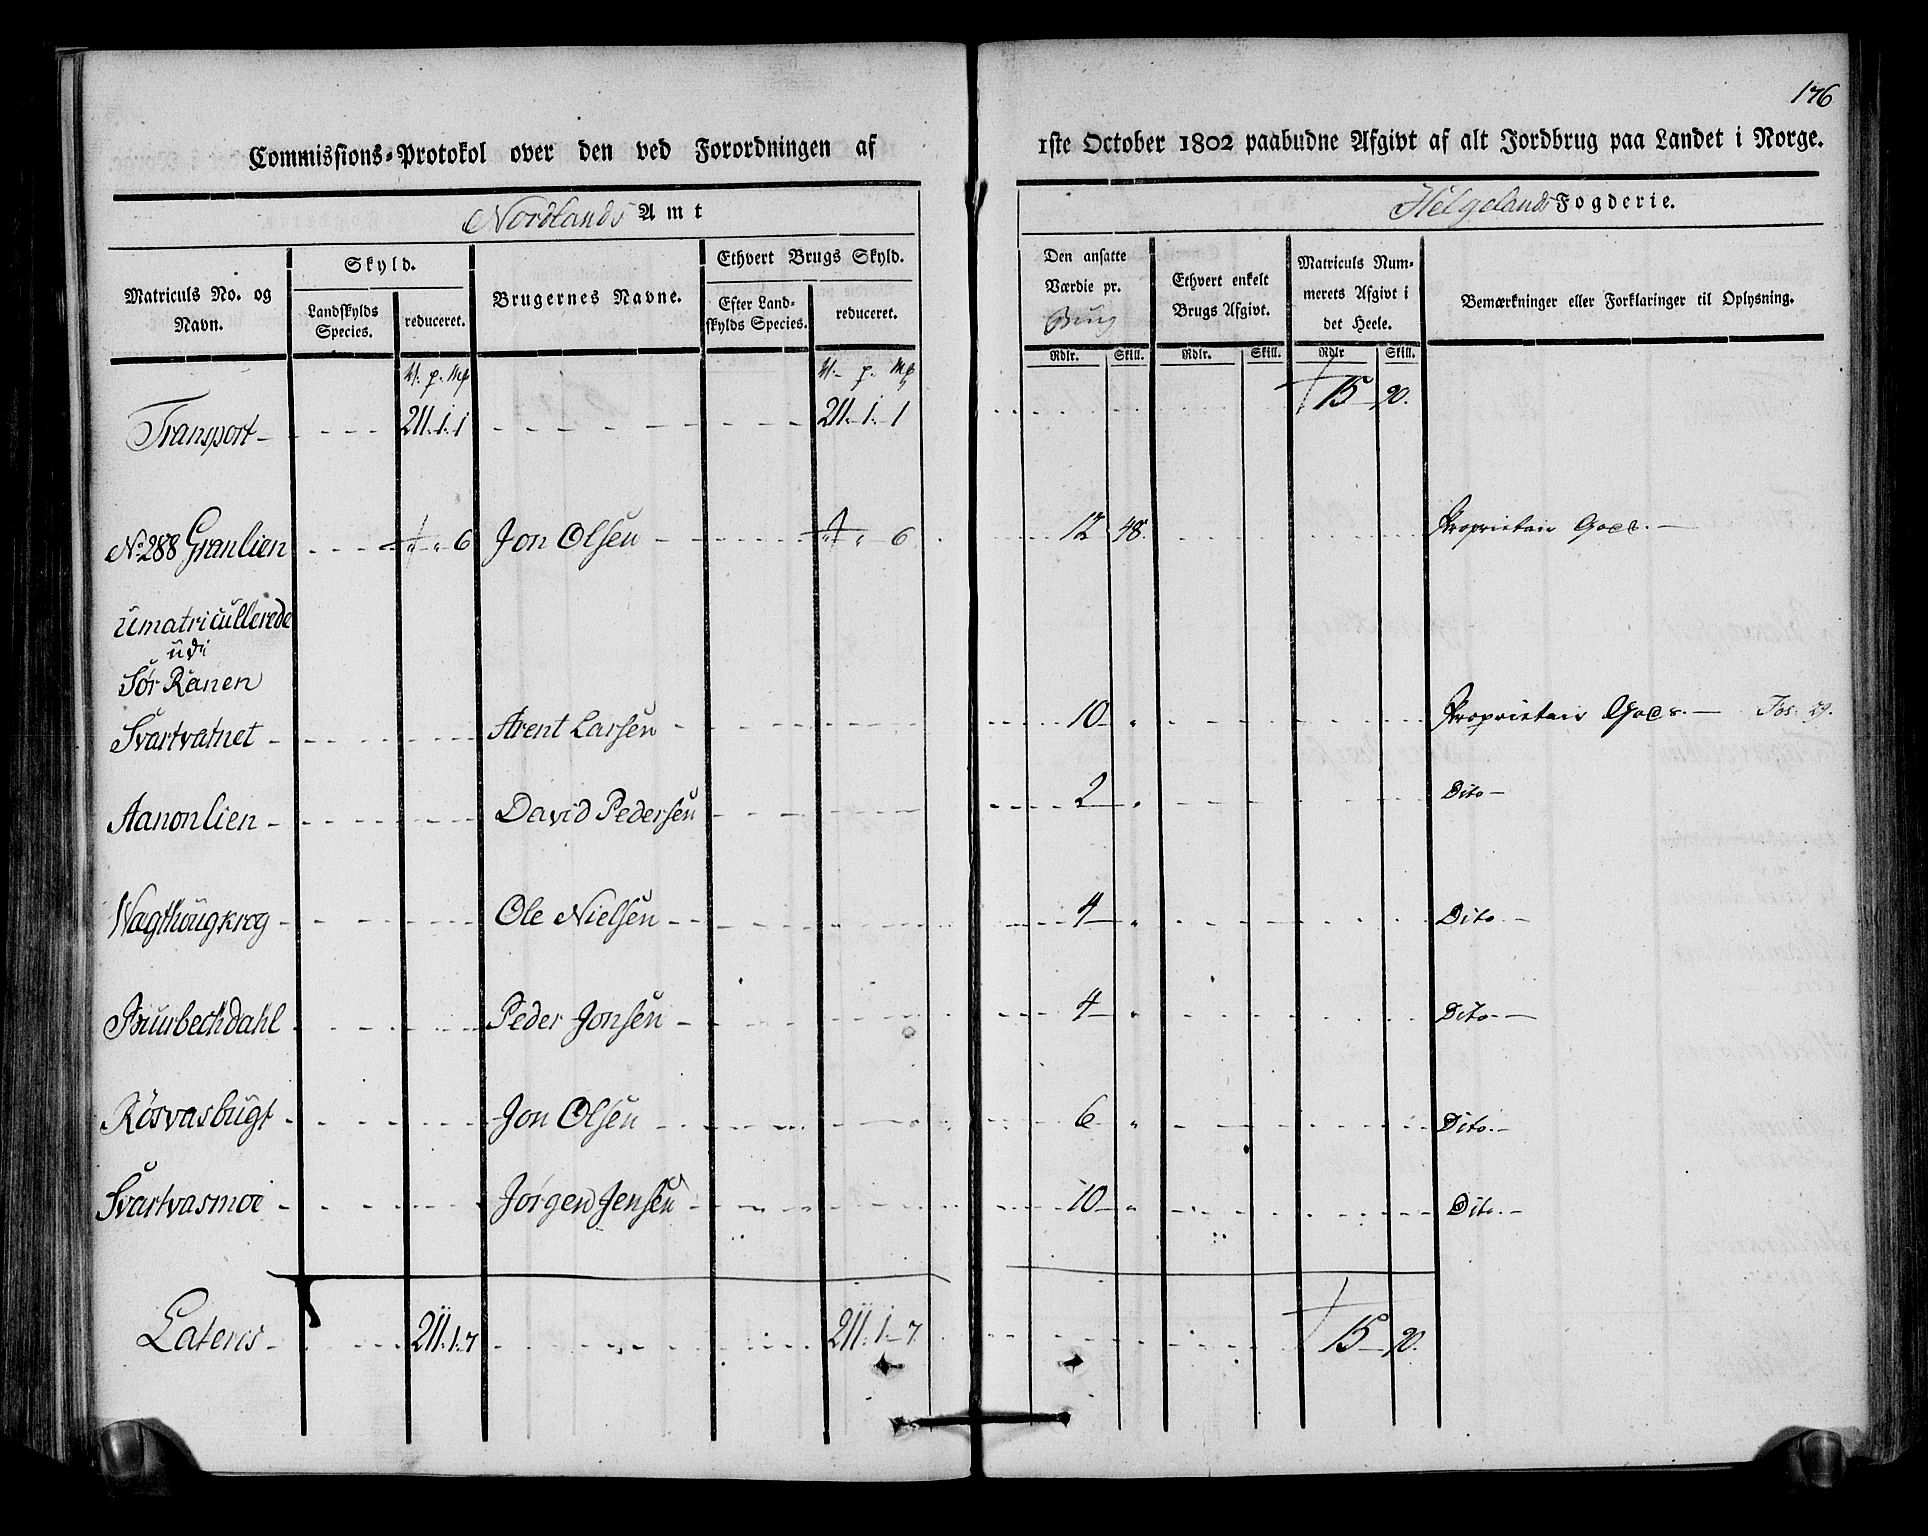 176
Commissions-Protokol over den ved Forordningen af 1ste October 1802 paabudne Afgivt af alt Jordbrug paa Landet i Norge.
Nordlands Amt Helgelands Fogderie.
Matriculs No. og Navn.
Skyld.
Landskylds Species.
reduceret.
Brugernes Navne.
Ethvert Brugs Skyld.
Efter Landskylds Species.
reduceret.
Den ansatte Værdie pr. Brug
Ethvert enkelt Brugs Afgivt.
Matriculs Nummerets Afgivt i det Heele.
Bemærkninger eller Forklaringer til Oplysning.
Rdlr. Skill. Rdlr. Skill. Rdlr Skill.
Transport 211. 1. 1 211. 1. 1 15 90.
No 288 Granlien 6 Jon Olsen 6 12 48. Proprietair Goes.
Umatricullerede
udi
Sør Ranen
Svartvatnet Arent Larsen 10 „ Proprietair Goes.
Aanonlien David Pedersen 2 „ Dito
Wagthougkrog Ole Nielsen 4 „ Dito
Buurbechdahl Peder Jonsen 4 „ Dito
Røsvasbugt Jon Olsen 6 „ Dito
Svartvasmoe Jørgen Jensen 10 „ Dito
Lateris 211. 1. 7 211. 1. 7 15 90.